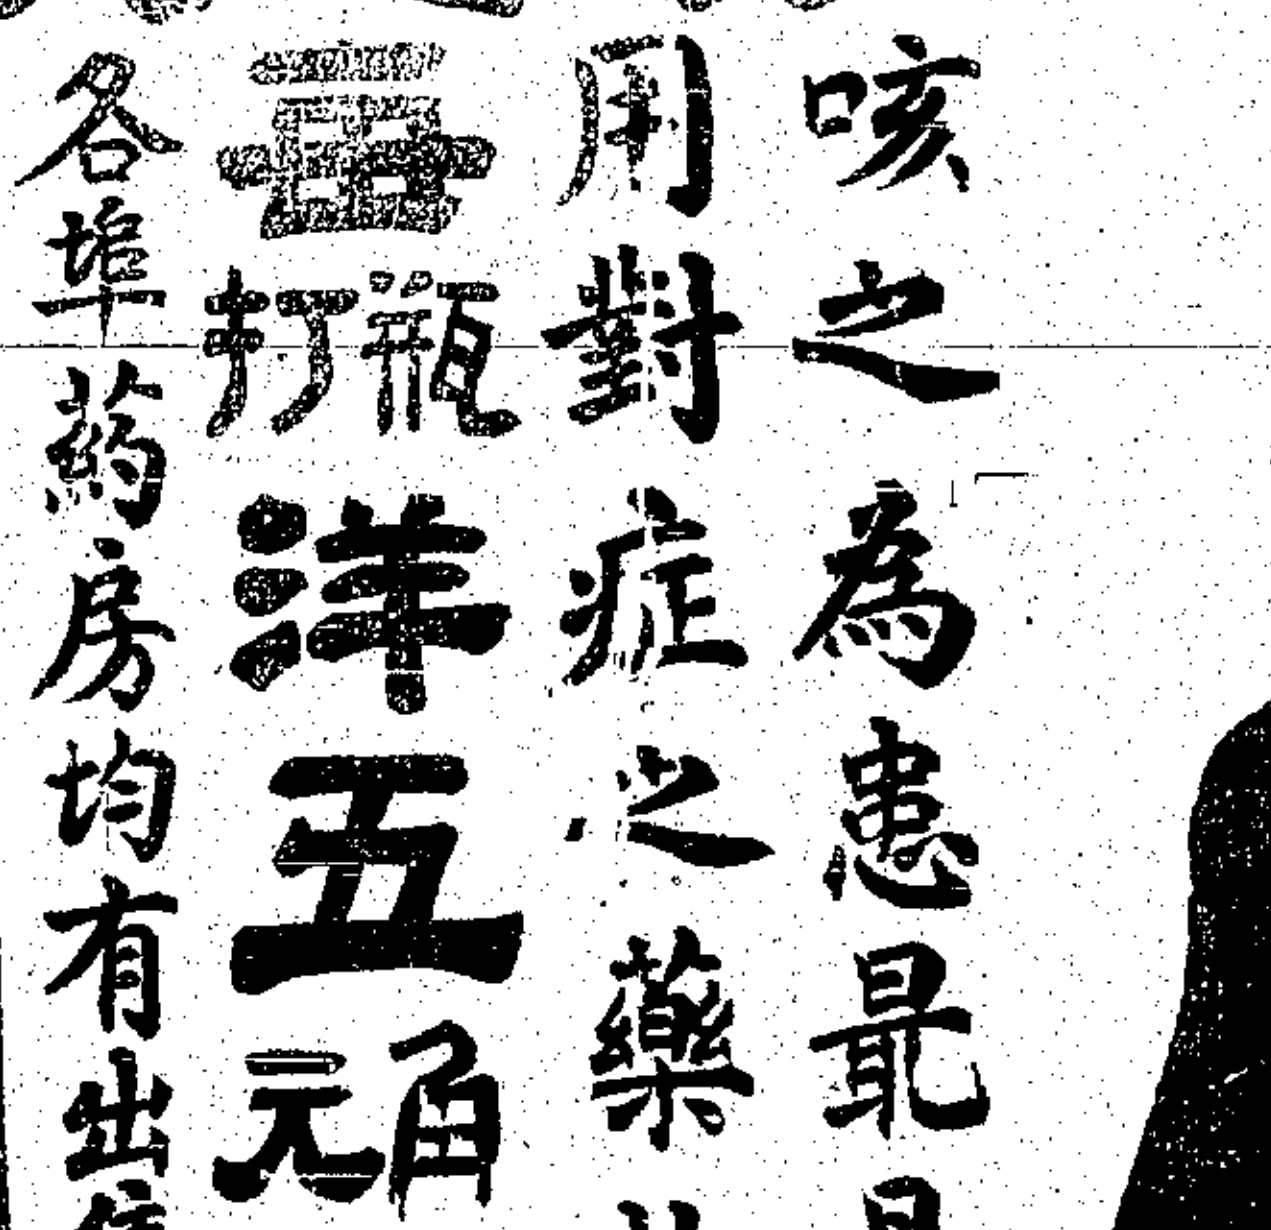 咳之為患最
用對症之藥
每瓶洋五角
打元
各埠葯房均有出